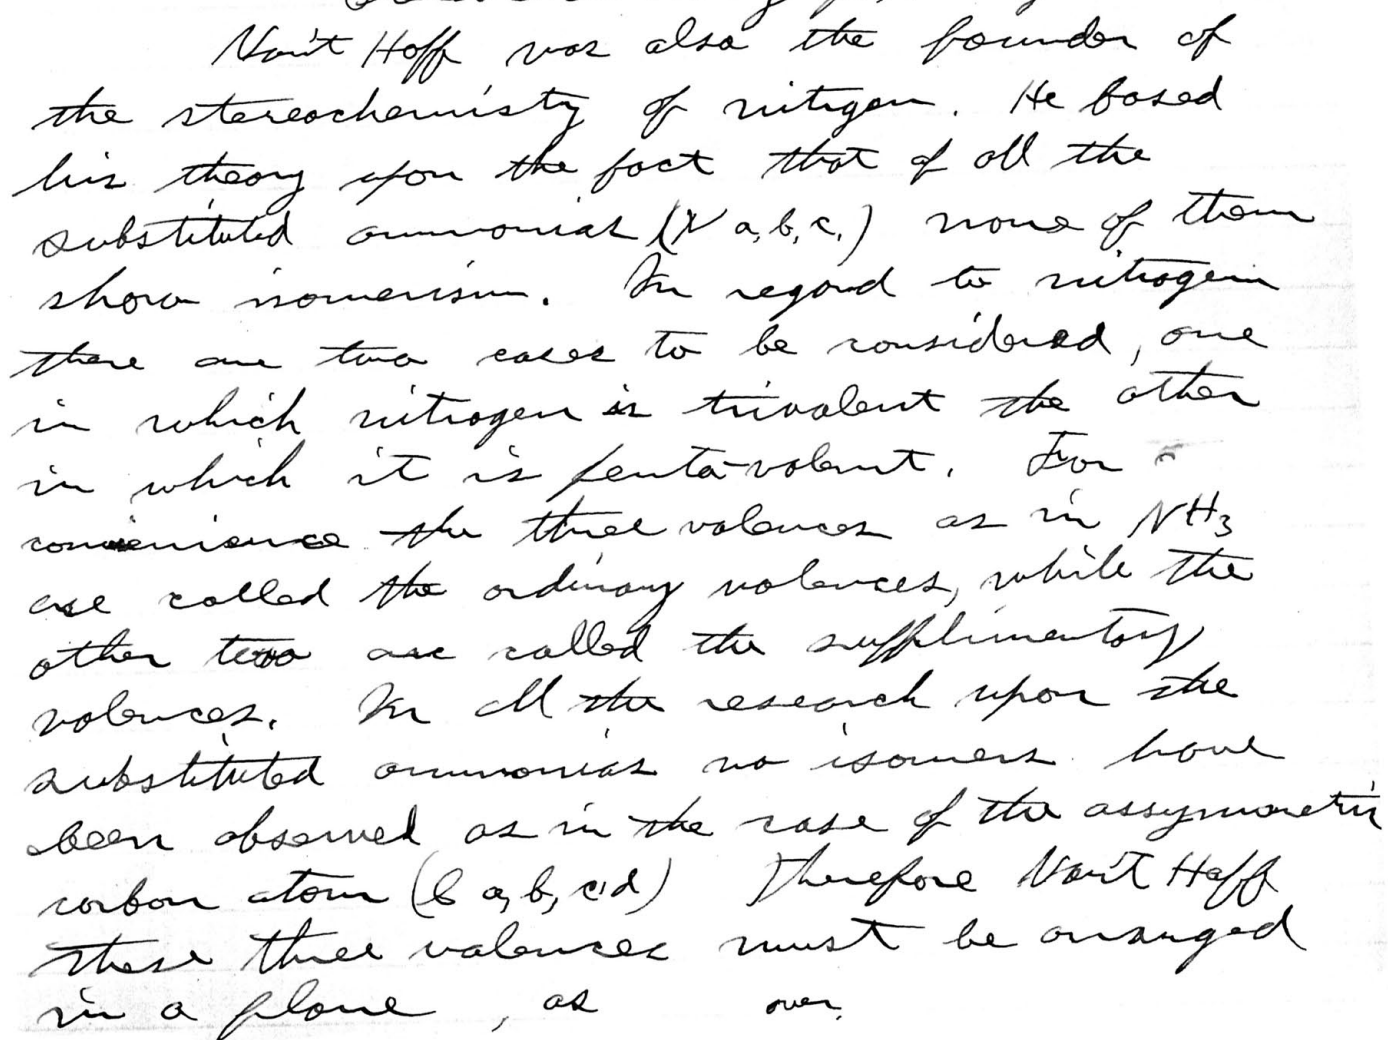 Van't Hoff was also the founder of
the stereochemisty of nitrogen. He based
his theory upon the fact that of all the
substituted ammonias (N a, b, c,) none of them
show isomerism. In regard to nitrogen
there are two cases to be considered, one
in which nitrogen is trivalent the other
in which it is penta-valent. For
convenience the three valences as in NH3
are called the ordinary valences, while the
other two are called the supplimentary
valences. In all the research upon the
substituted ammonias no isomers have
been observed as in the case of the assymmetric
carbon atom (C a, b, c, d) Therefore Van't Hoff
these three valences must be arranged
in a plane, as over.